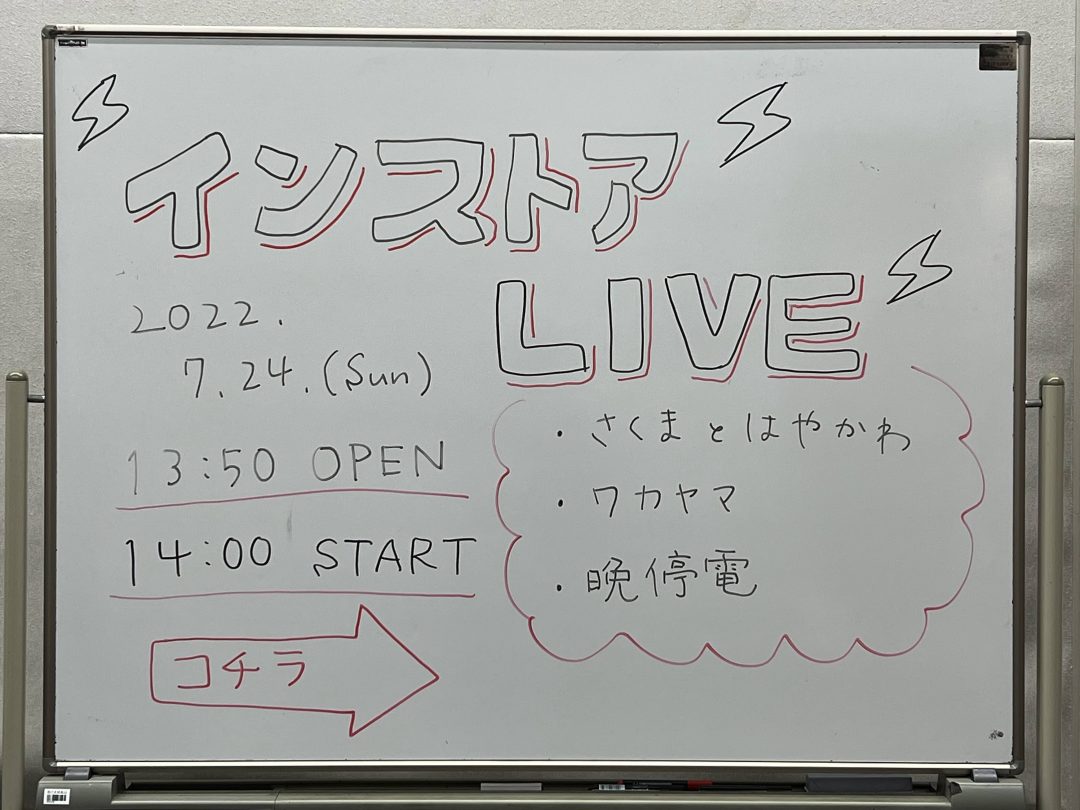 インストア
LIVE
2022.
7.24.(Sun)
13:50 OPEN
14:00 START
コチラ
・さくまとはやかわ
・ワカヤマ
・晩停電